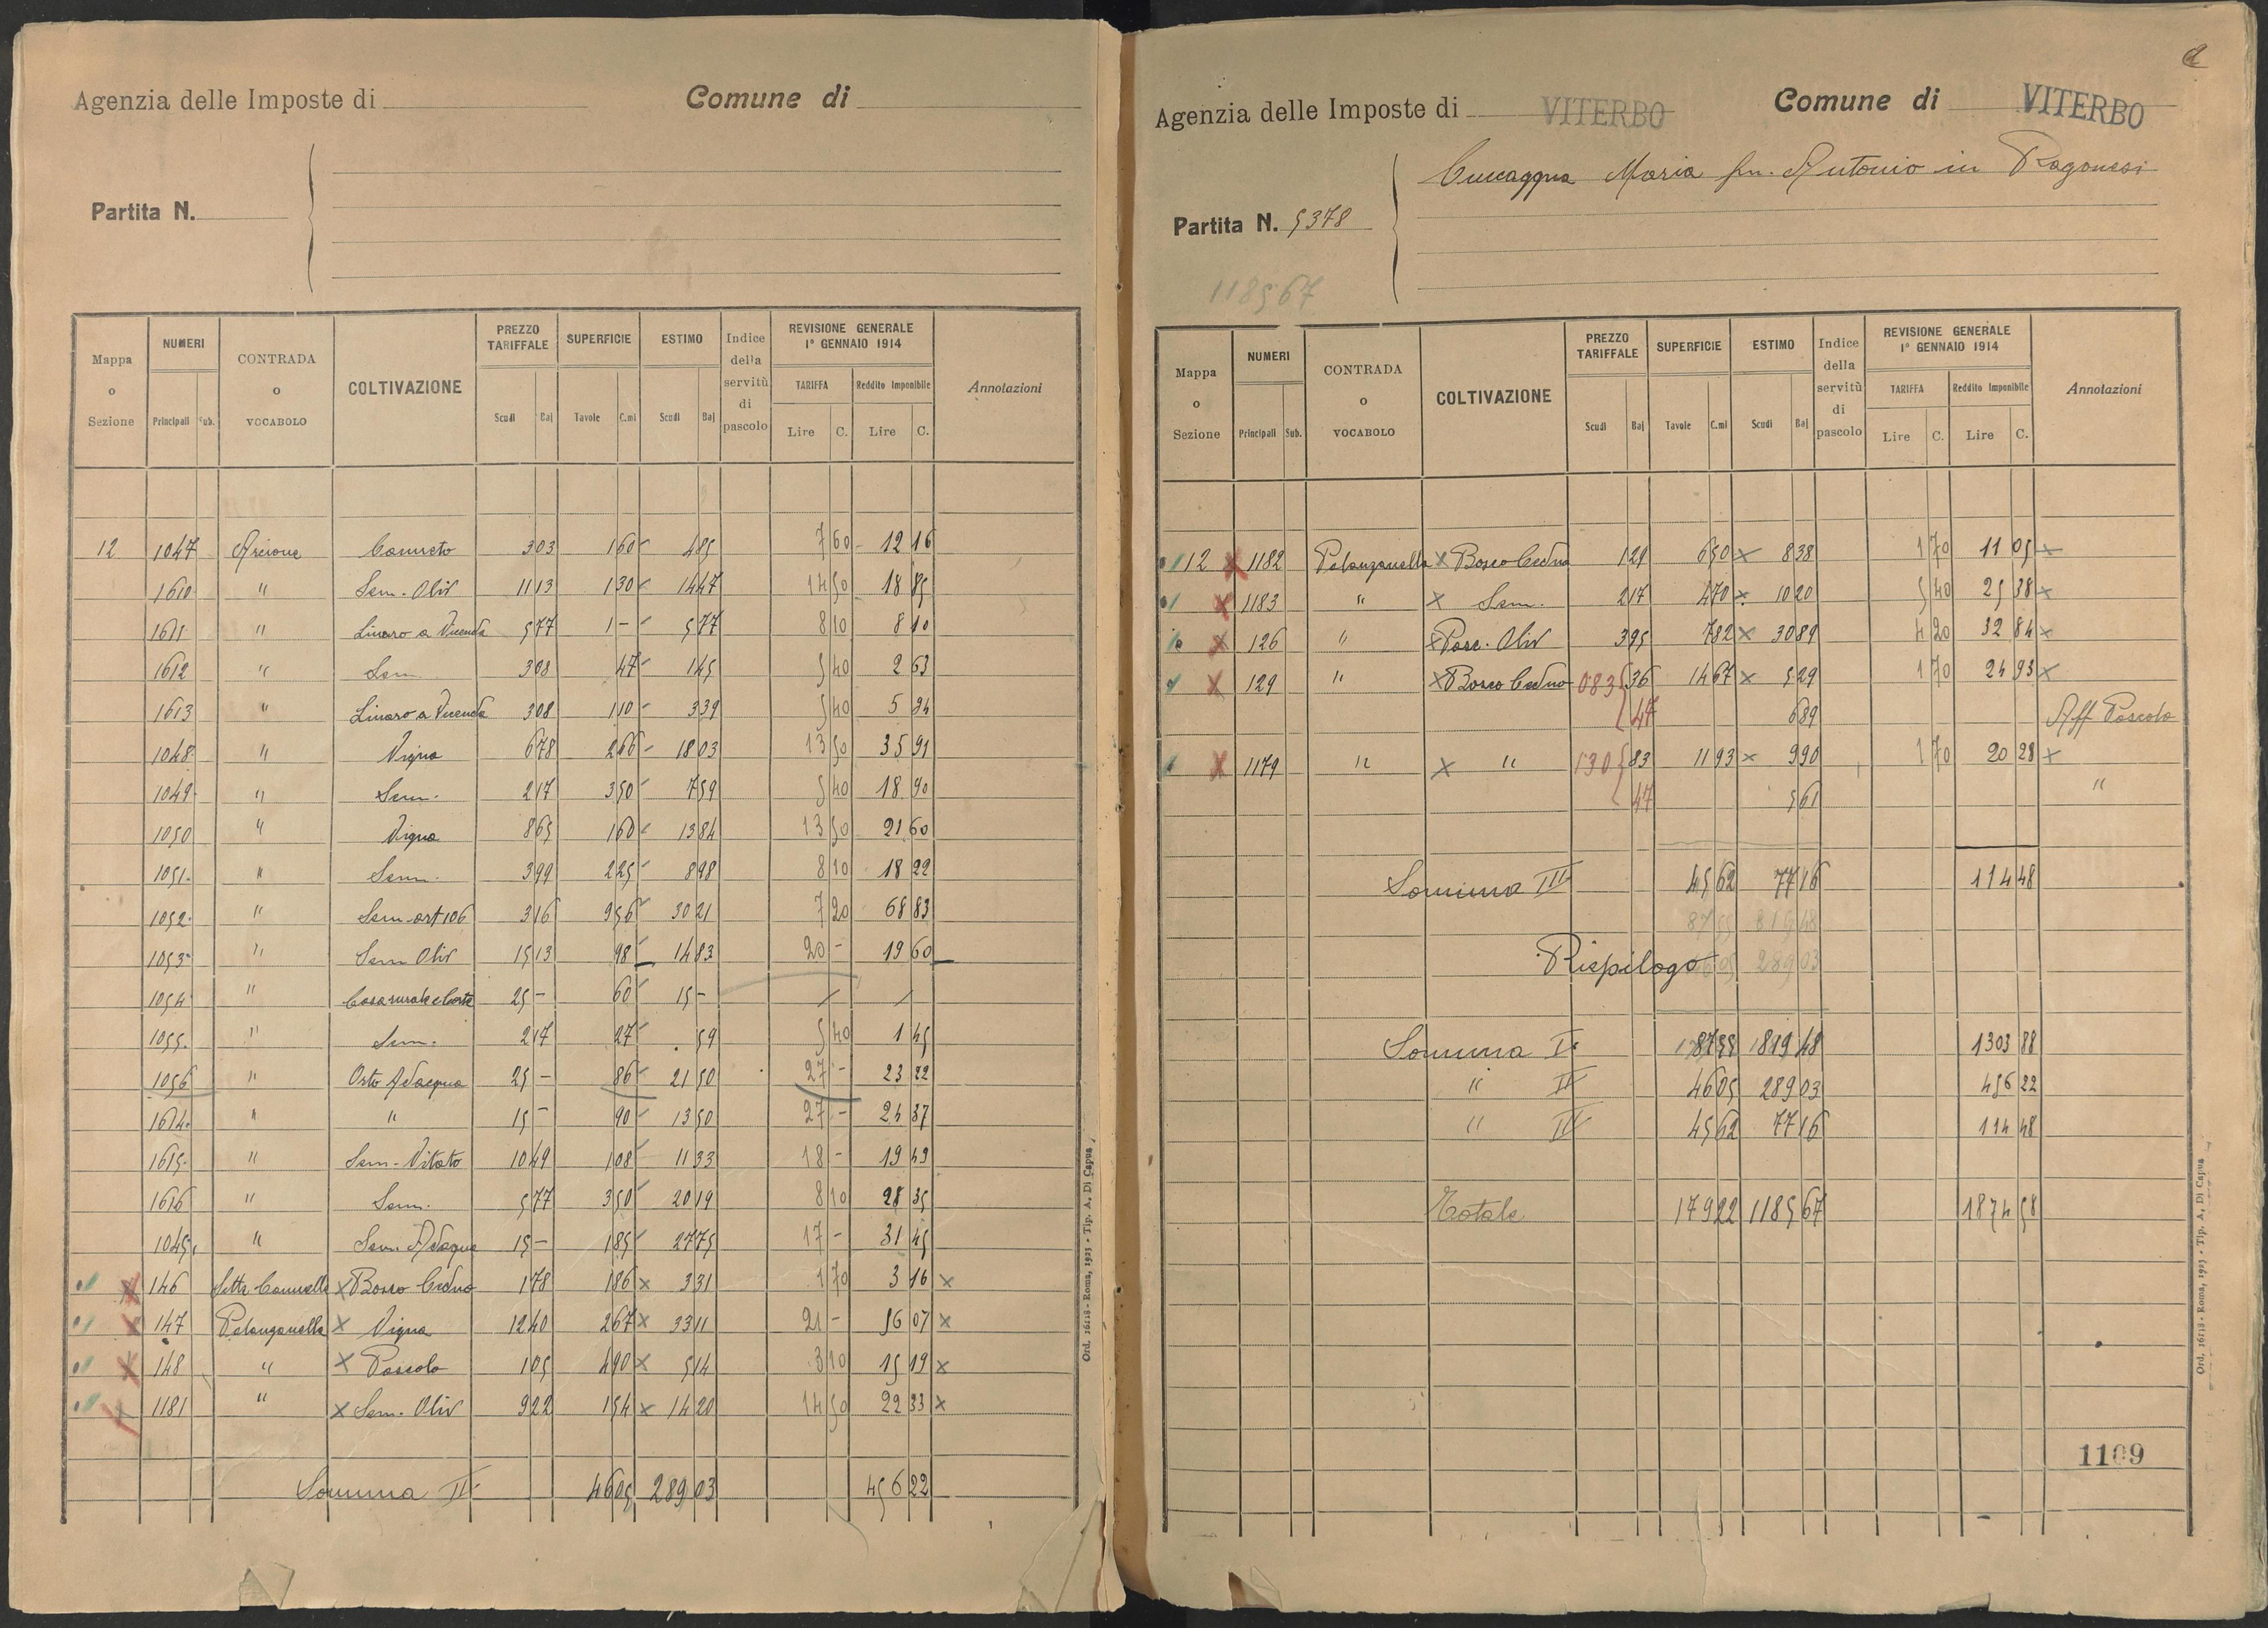 Agenzia delle Imposte di Comune di
Partita N.
Mappa o Sezione NUMERI Principali Sub. CONTRADA o VOCABOLO COLTIVAZIONE PREZZO TARIFFALE Scudi Baj SUPERFICIE Tavole C.mi ESTIMO Scudi Baj Indice della servitù di pascolo REVISIONE GENERALE 1° GENNAIO 1914 TARIFFA Lire C. Reddito Imponibile Lire C. Annotazioni
12 1047 Arcione Canneto 3 03 1 60 4 85 7 60 12 16
1610 " Sem. Oliv 11 13 1 30 14 47 14 50 18 85
1611 " Linaro a Vicenda 5 77 1 - 5 77 8 10 8 10
1612 " Sem. 3 08 47 1 45 5 40 2 63
1613 " Linaro a Vicenda 3 08 1 10 3 39 5 40 5 94
1048 " Vigna 6 78 2 66 18 03 13 50 35 91
1049 " Sem. 2 17 3 50 7 59 5 40 18 90
1050 " Vigna 8 65 1 60 13 84 13 50 21 60
1051 " Sem. 3 99 2 25 8 98 8 10 18 22
1052 " Sem. art 106 3 16 9 56 30 21 7 20 68 83
1053 " Sem Oliv 15 13 98 14 83 20 - 19 60
1054 " Casa rurale e Corte 25 - 60 15 -
1055 " Sem. 2 17 27 59 5 40 1 45
1056 " Orto Adacqua 25 - 86 21 50 27 - 23 22
1614 " " 15 - 90 13 50 27 - 24 37
1615 " Sem. Vitato 10 49 1 08 11 33 18 - 19 43
1616 " Sem. 5 77 3 50 20 19 8 10 28 35
1045 " Sem. Adaqua 15 - 1 85 27 75 17 - 31 45
x 146 Sette Cannelle x Bosco Ceduo 1 78 1 86 x 3 31 1 70 3 16 x
x 147 Palanzanella x Vigna 12 40 2 67 x 33 11 21 - 56 07 x
x 148 " x Pascolo 1 05 4 90 x 5 14 3 10 15 19 x
x 1181 " x Sem. Oliv 9 22 1 54 x 14 20 14 50 22 33 x
Somma II 46 05 289 03 456 22
Ord. 16118 - Roma, 1923 - Tip. A. Di Capua
Agenzia delle Imposte di VITERBO Comune di VITERBO
Cuccagna Maria fu. Antonio in Ragonesi
Partita N. 5378
1185 67
Mappa o Sezione NUMERI Principali Sub. CONTRADA o VOCABOLO COLTIVAZIONE PREZZO TARIFFALE Scudi Baj SUPERFICIE Tavole C.mi ESTIMO Scudi Baj Indice della servitù di pascolo REVISIONE GENERALE 1° GENNAIO 1914 TARIFFA Lire C. Reddito Imponibile Lire C. Annotazioni
12 x 1182 Palanzanella x Bosco Ceduo 1 29 6 50 x 8 38 1 70 11 05 x
x 1183 " x Sem. 2 17 4 70 x 10 20 5 40 25 38 x
x 126 " x Pasc. Oliv 3 95 7 82 x 30 89 4 20 32 84 x
x 129 " x Bosco Ceduo 0.83 { 36 14 67 x 5 29 1 70 24 93 x
47 6 89 Aff Pascolo
x 1179 " x " 1.30 { 83 11 93 x 9 90 1 70 20 28 x
47 5 61 "
Somma III 45 62 77 16 114 48
87 55 819 48
Riepilogo 46 05 289 03
Somma I 87 55 819 48 1303 88
" II 46 05 289 03 456 22
" III 45 62 77 16 114 48
Totale 179 22 1185 67 1874 58
1109
Ord. 16118 - Roma, 1923 - Tip. A. Di Capua